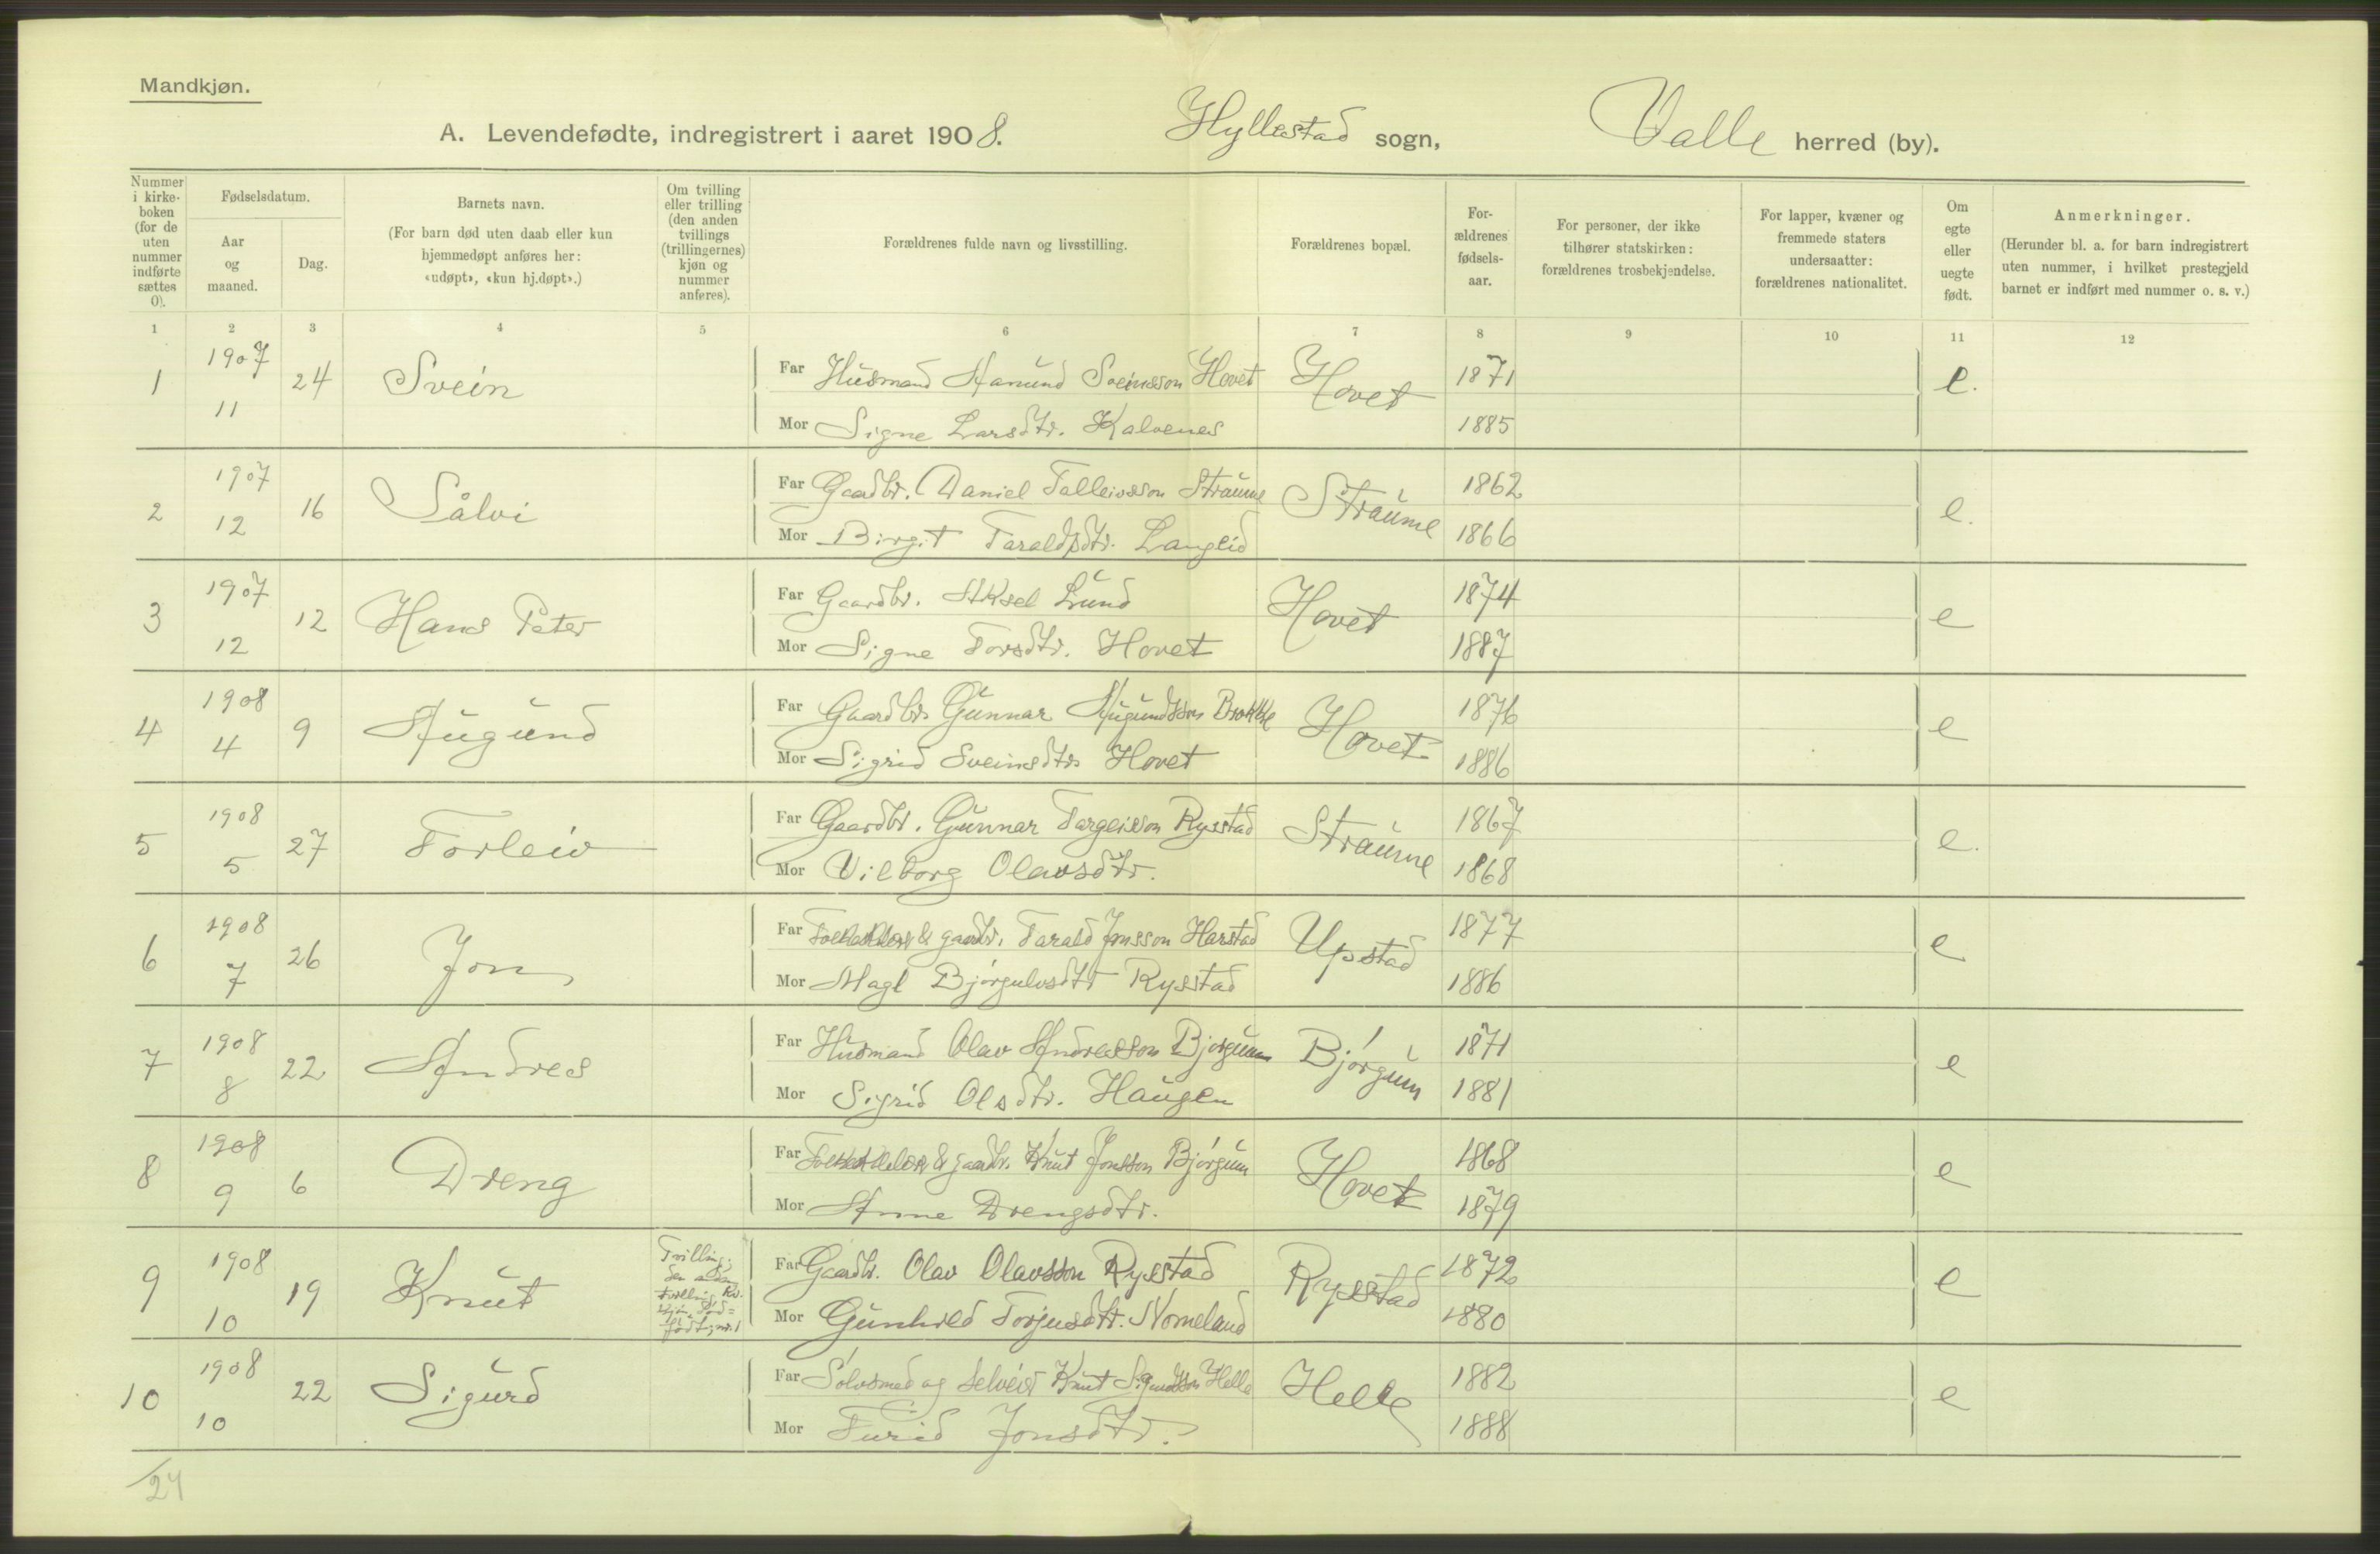 Mandkjøn.
A. Levendefødte, indregistrert i aaret 1908. Hyllestad sogn, Valle herred (by).
Nummer i kirke-boken (for de uten nummer indførte sættes 0).
Fødselsdatum.
Aar og maaned.
Dag.
Barnets navn.
(For barn død uten daab eller kun hjemmedøpt anføres her: «udøpt», «kun hj.døpt».)
Om tvilling eller trilling (den anden tvillings (trillingernes) kjøn og nummer anføres).
Forældrenes fulde navn og livsstilling.
Forældrenes bopæl.
For-ældrenes fødsels-aar.
For personer, der ikke tilhører statskirken: forældrenes trosbekjendelse.
For lapper, kvæner og fremmede staters undersaatter: forældrenes nationalitet.
Om egte eller uegte født.
Anmerkninger.
(Herunder bl. a. for barn indregistrert uten nummer, i hvilket prestegjeld barnet er indført med nummer o. s. v.)
1 2 3 4 5 6 7 8 9 10 11 12
1 1907 11 24 Svein Far Husmand Aanund Sveinsson Hovet Hovet 1871 e.
Mor Signe Larsdtr. Kalvenes 1885
2 1907 12 16 Sålvi Far Gaardbr. Daniel Talleivsson Straume Straume 1862 e.
Mor Birgit Taraldsdtr. Langeid 1866
3 1907 12 12 Hans Peter Far Gaardbr. Aksel Lund Hovet 1874 e
Mor Signe Torsdtr. Hovet 1887
4 1908 4 9 Augund Far Gaardbr. Gunnar Augundsson Brokke Hovet 1876 e
Mor Sigrid Sveinsdtr. Hovet 1886
5 1908 5 27 Torleiv Far Gaardbr. Gunnar Targeisson Rysstad Straume 1867 e.
Mor Vilborg Olavsdtr. 1868
6 1908 7 26 Jon Far & gaardbr. Tarald Jonsson Harstad Upstad 1877 e
Mor Magl Bjørgulvsdtr Rysstad 1886
7 1908 8 22 Andres Far Husmand Olav Andresson Bjørgum Bjørgum 1871 e
Mor Sigrid Olsdtr. Haugen 1881
8 1908 9 6 Dreng Far & gaardbr. Knut Jonsson Bjørgum Hovet 1868 e
Mor Anne Drengsdtr. 1879
9 1908 10 19 Knut Tvilling; den anden tvilling Kv. kjøn, død=født, nr. 1 Far Gaardbr. Olav Olavsson Rysstad Rysstad 1872 e
Mor Gunhild Torjusdtr. Nomeland 1880
10 1908 10 22 Sigurd Far Sølvsmed og selveier Knut Sigurdsson Helle Helle 1882 e
Mor Turid Jonsdtr. 1888
/24